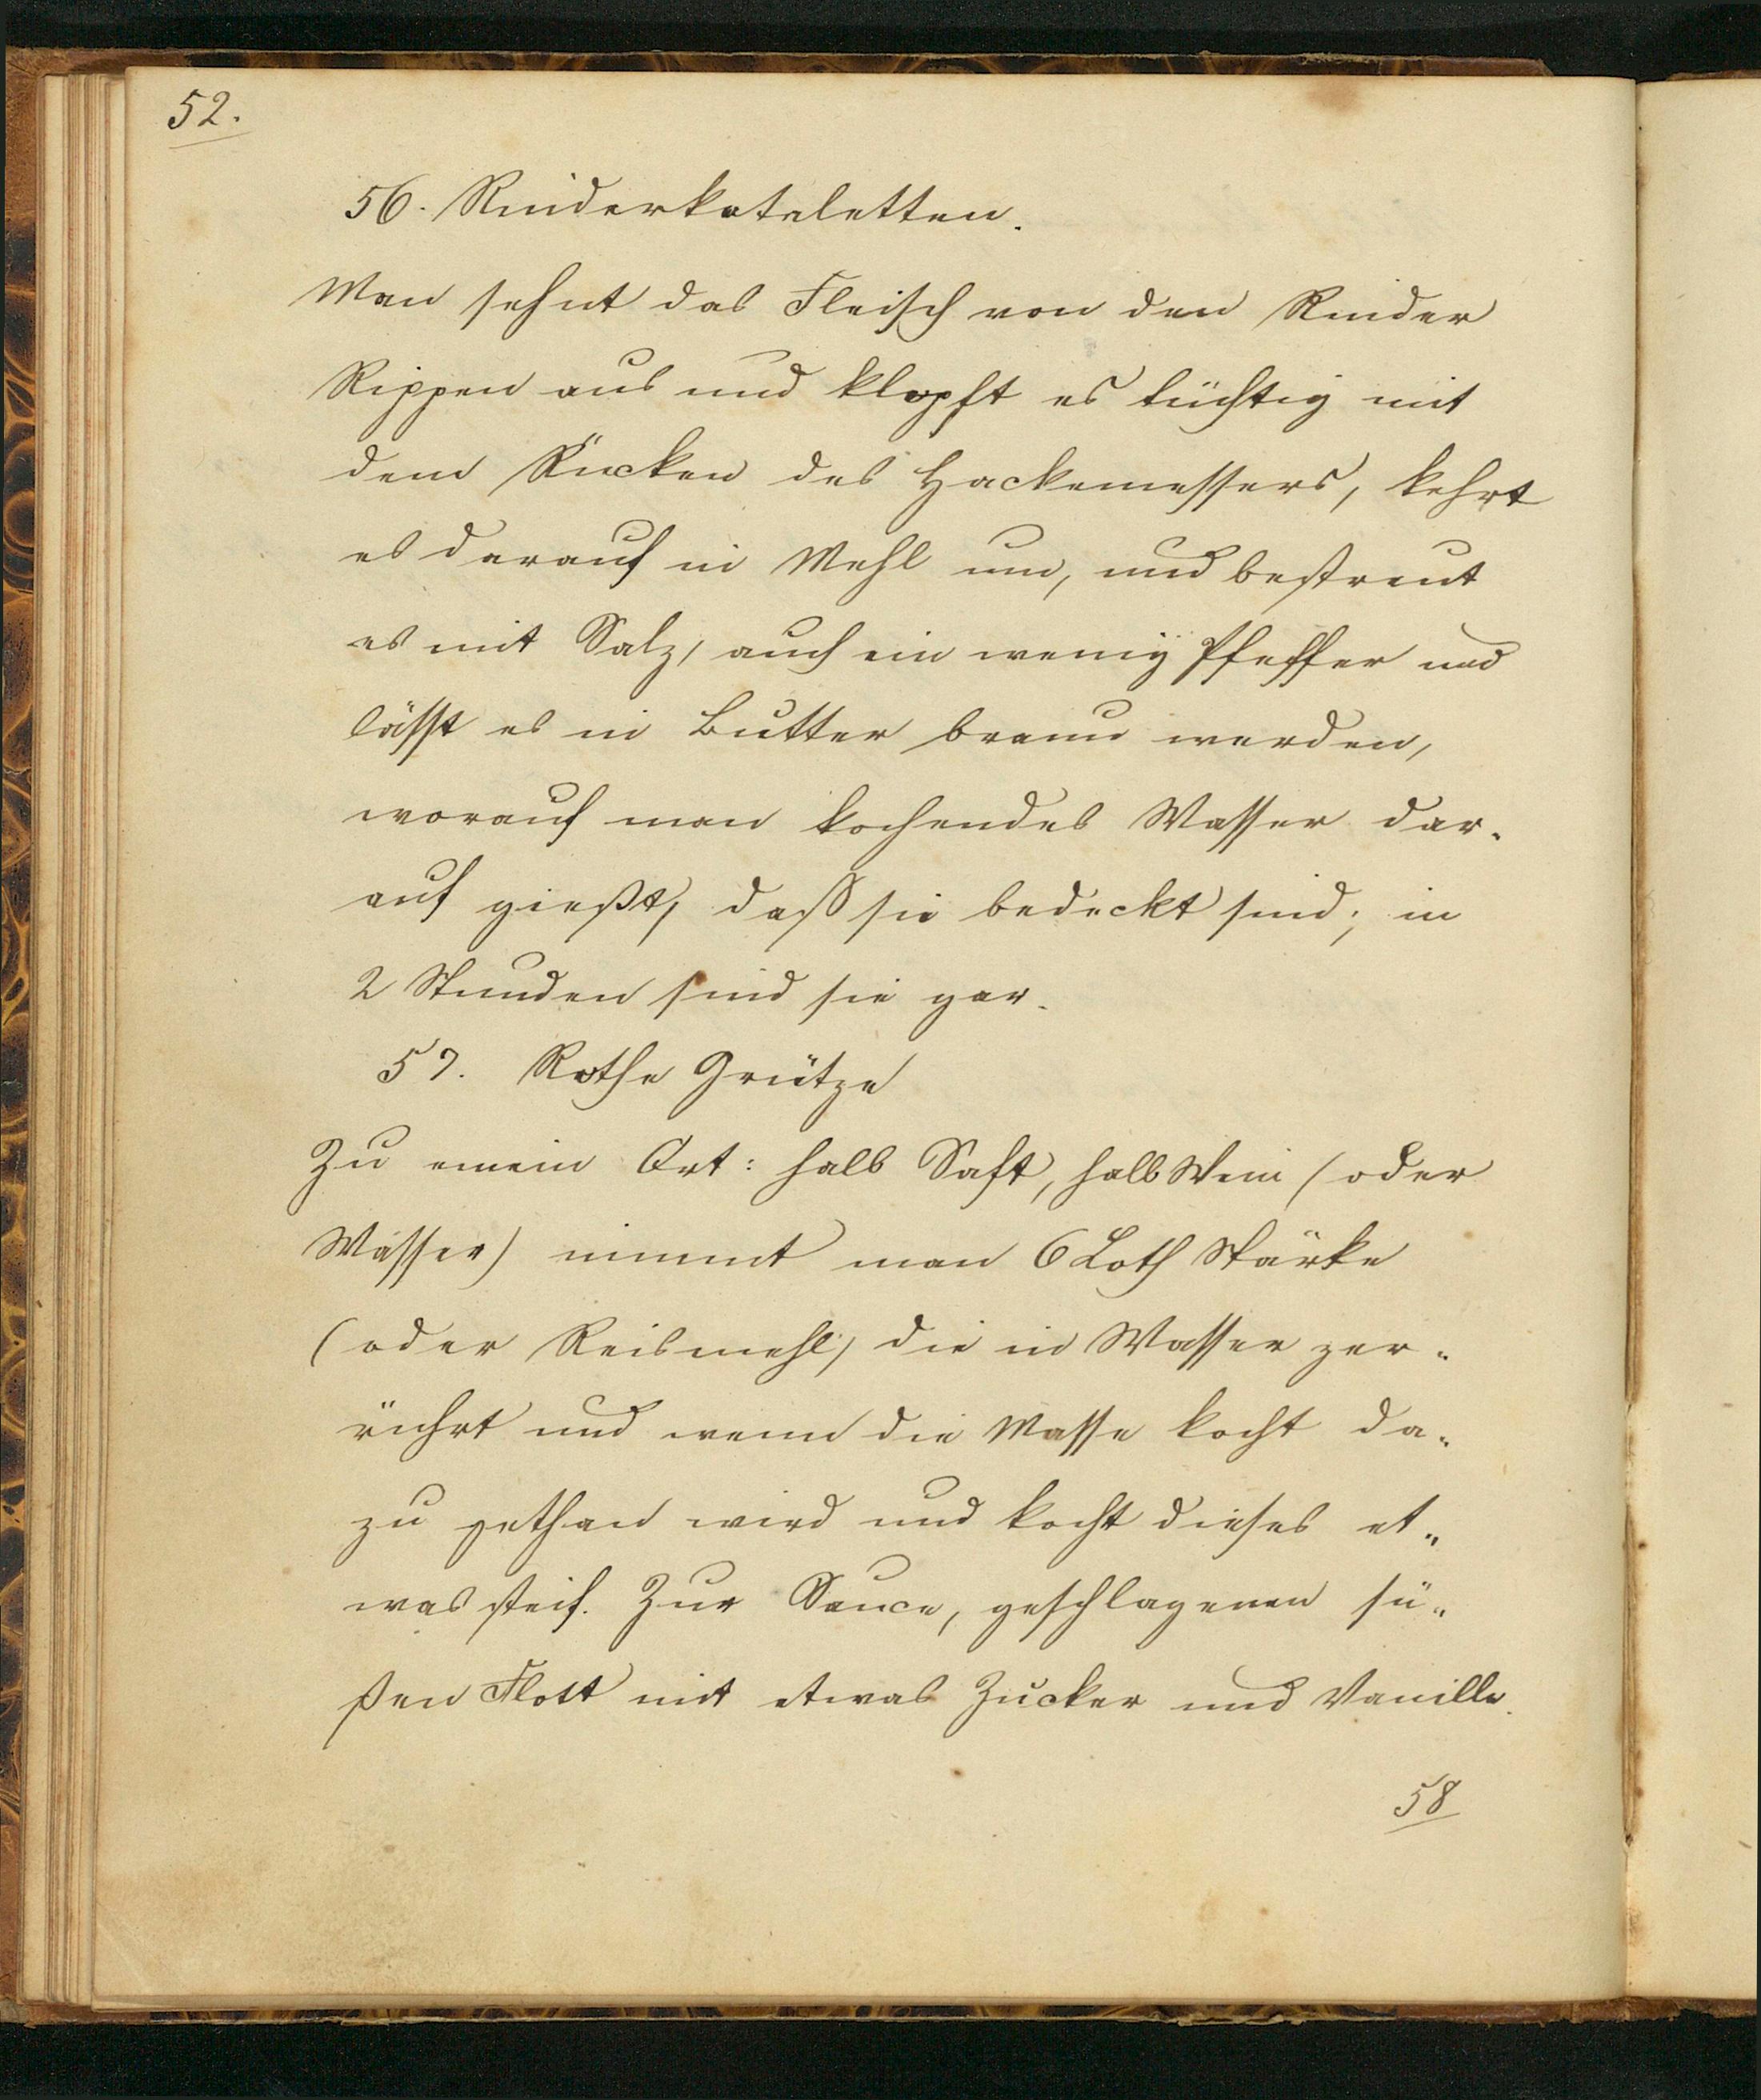 52.
56. Rinderkoteletten.
Man sehnt das Fleisch von den Rinder
Rippen aus und klopft es tüchtig mit
dem Rücken des Hackemessers, kehrt
es darauf in Mehl um, und bestreut
es mit Salz, auch ein wenig Pfeffer und
lässt es in Butter braun werden,
worauf man kochendes Wasser dar-
auf gießt, daß sie bedeckt sind; in
2 Stunden sind sie gar.
57. Rothe Grütze
Zu einem Ort: halb Saft, halb Wein (oder
Wasser) nimmt man 6 Loth Stärke
(oder Reismehl) die in Wasser zer-
rührt und wenn die Masse kocht da-
zu gethan wird und kocht dieses et-
was steif. Zur Sauce, geschlagenen sü-
ßen Flott mit etwas Zucker und Vanille.
58